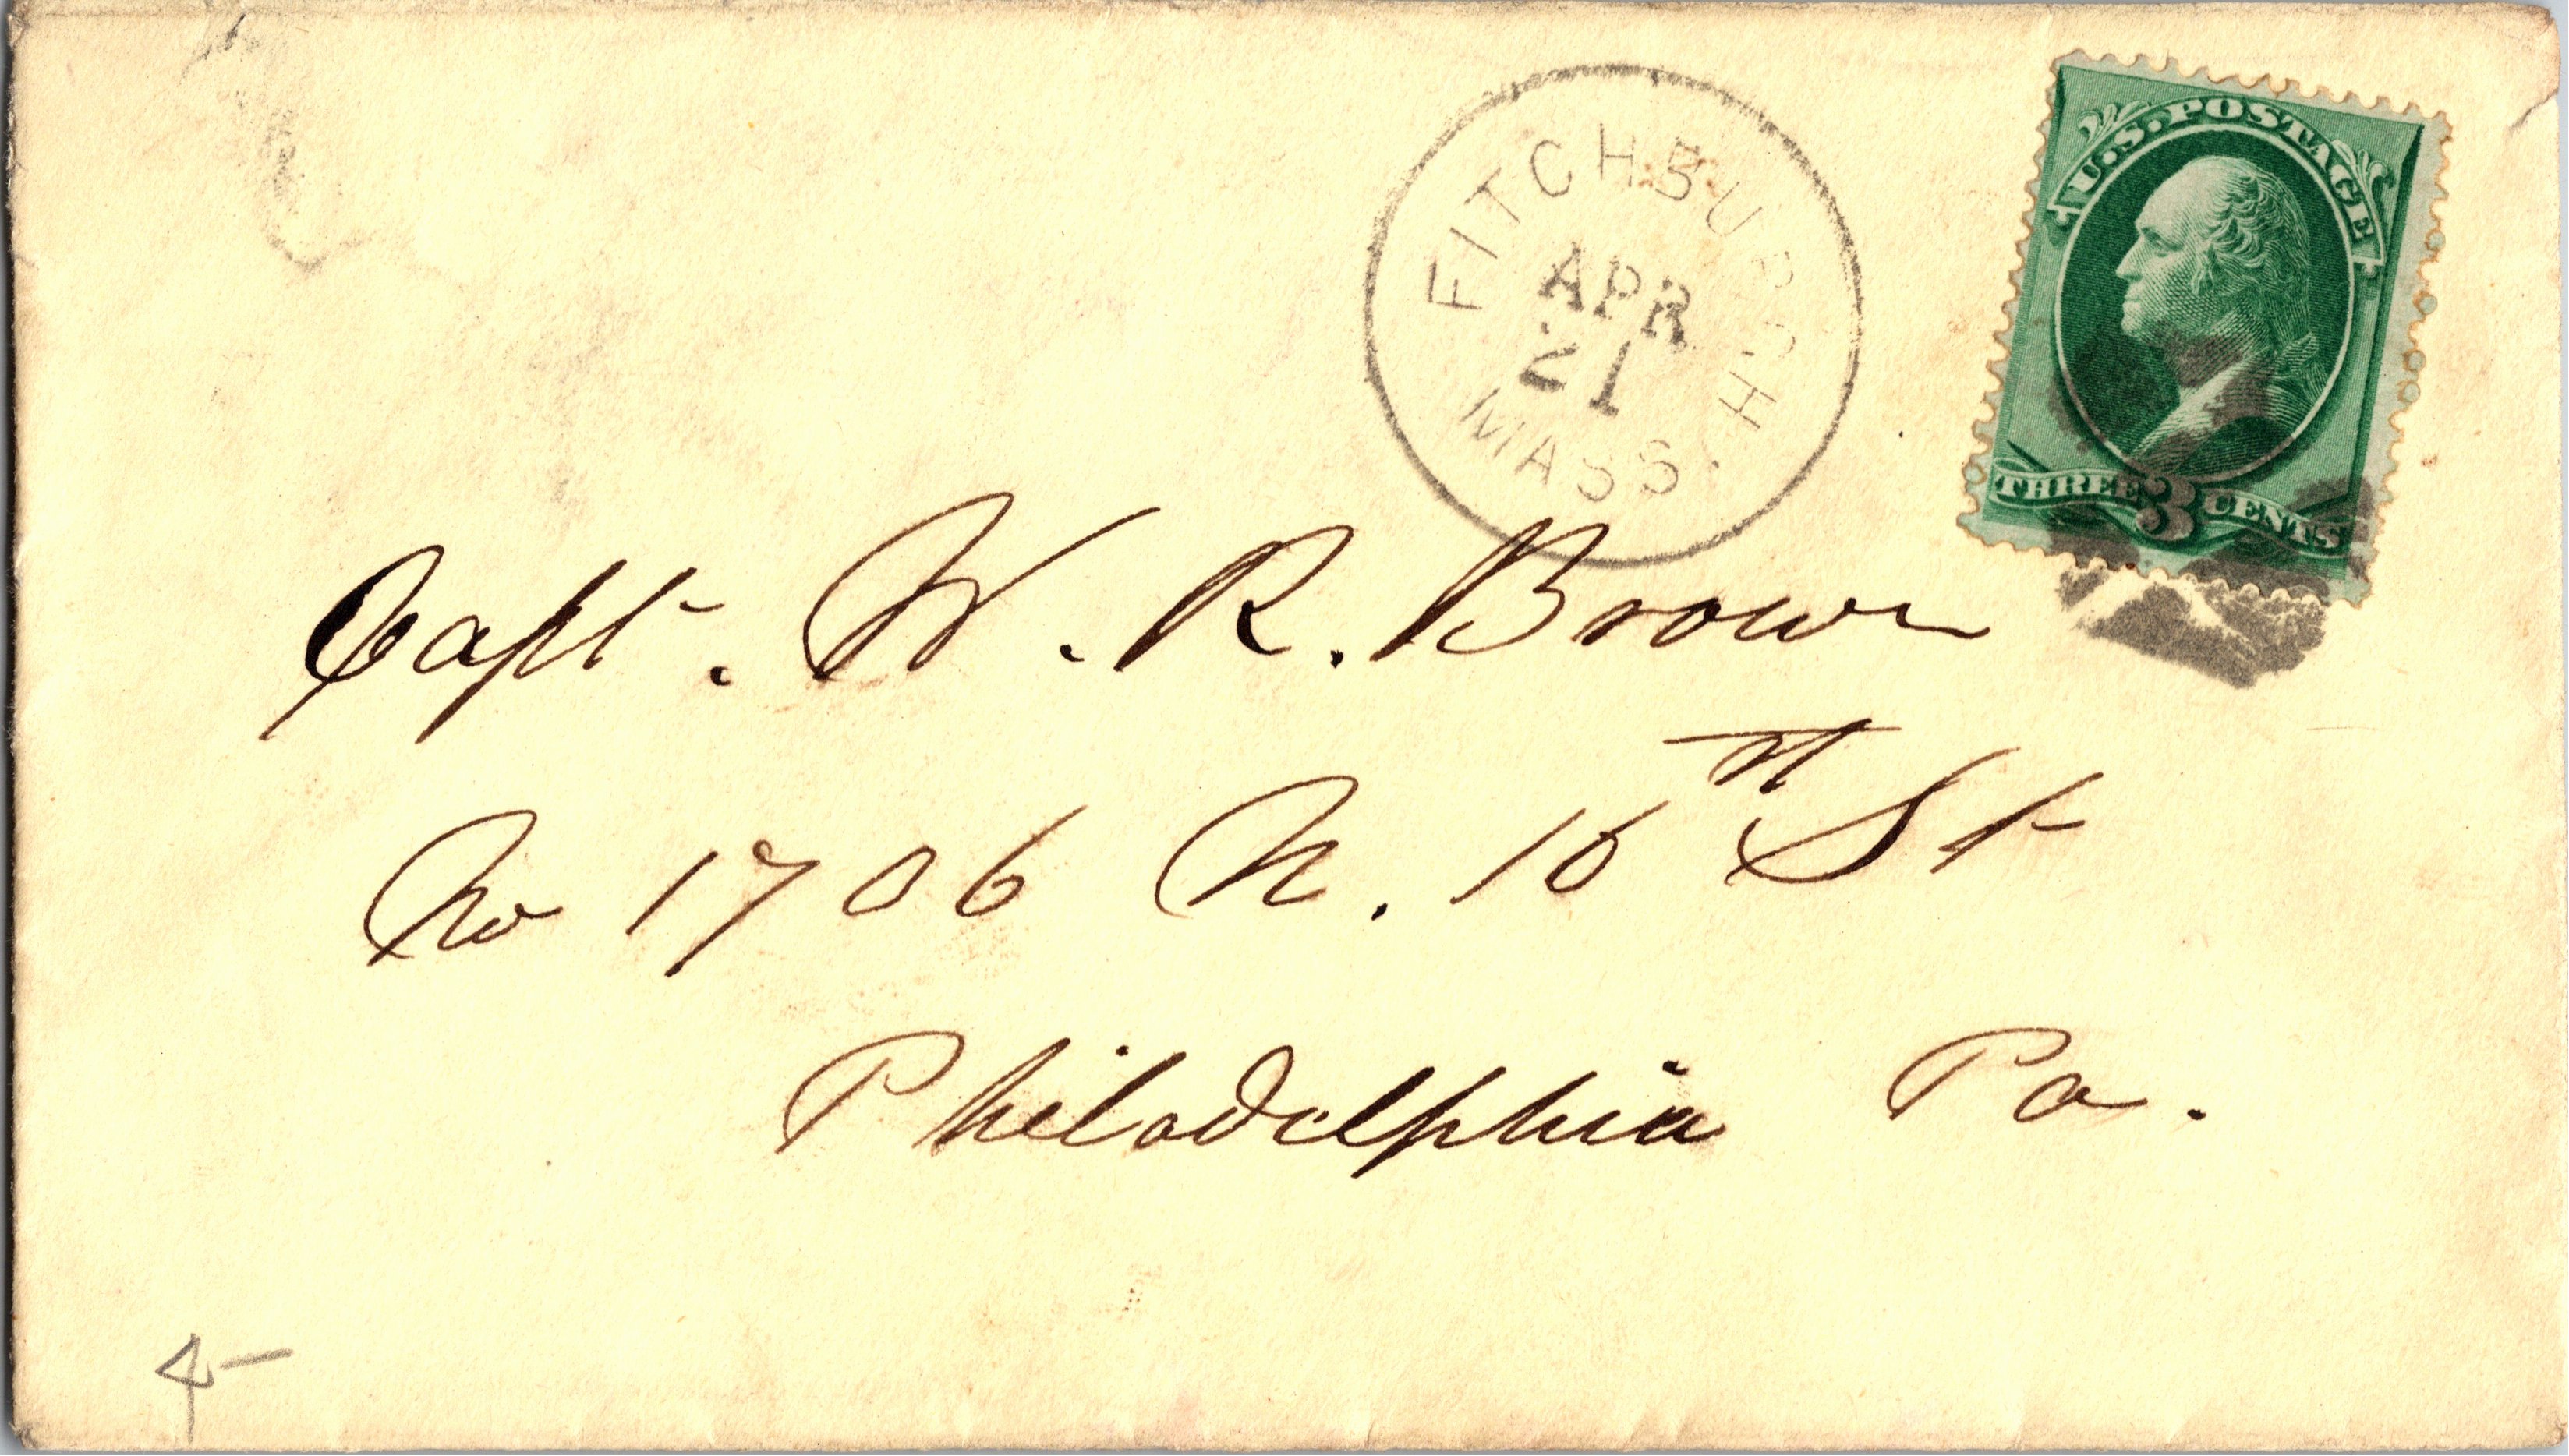 FITCHBURGH
APR
21
MASS.
U.S. POSTAGE
THREE 3 CENTS
Capt. W. R. Brown
No 1706 N. 16th St
Philadelphia Pa.
4-